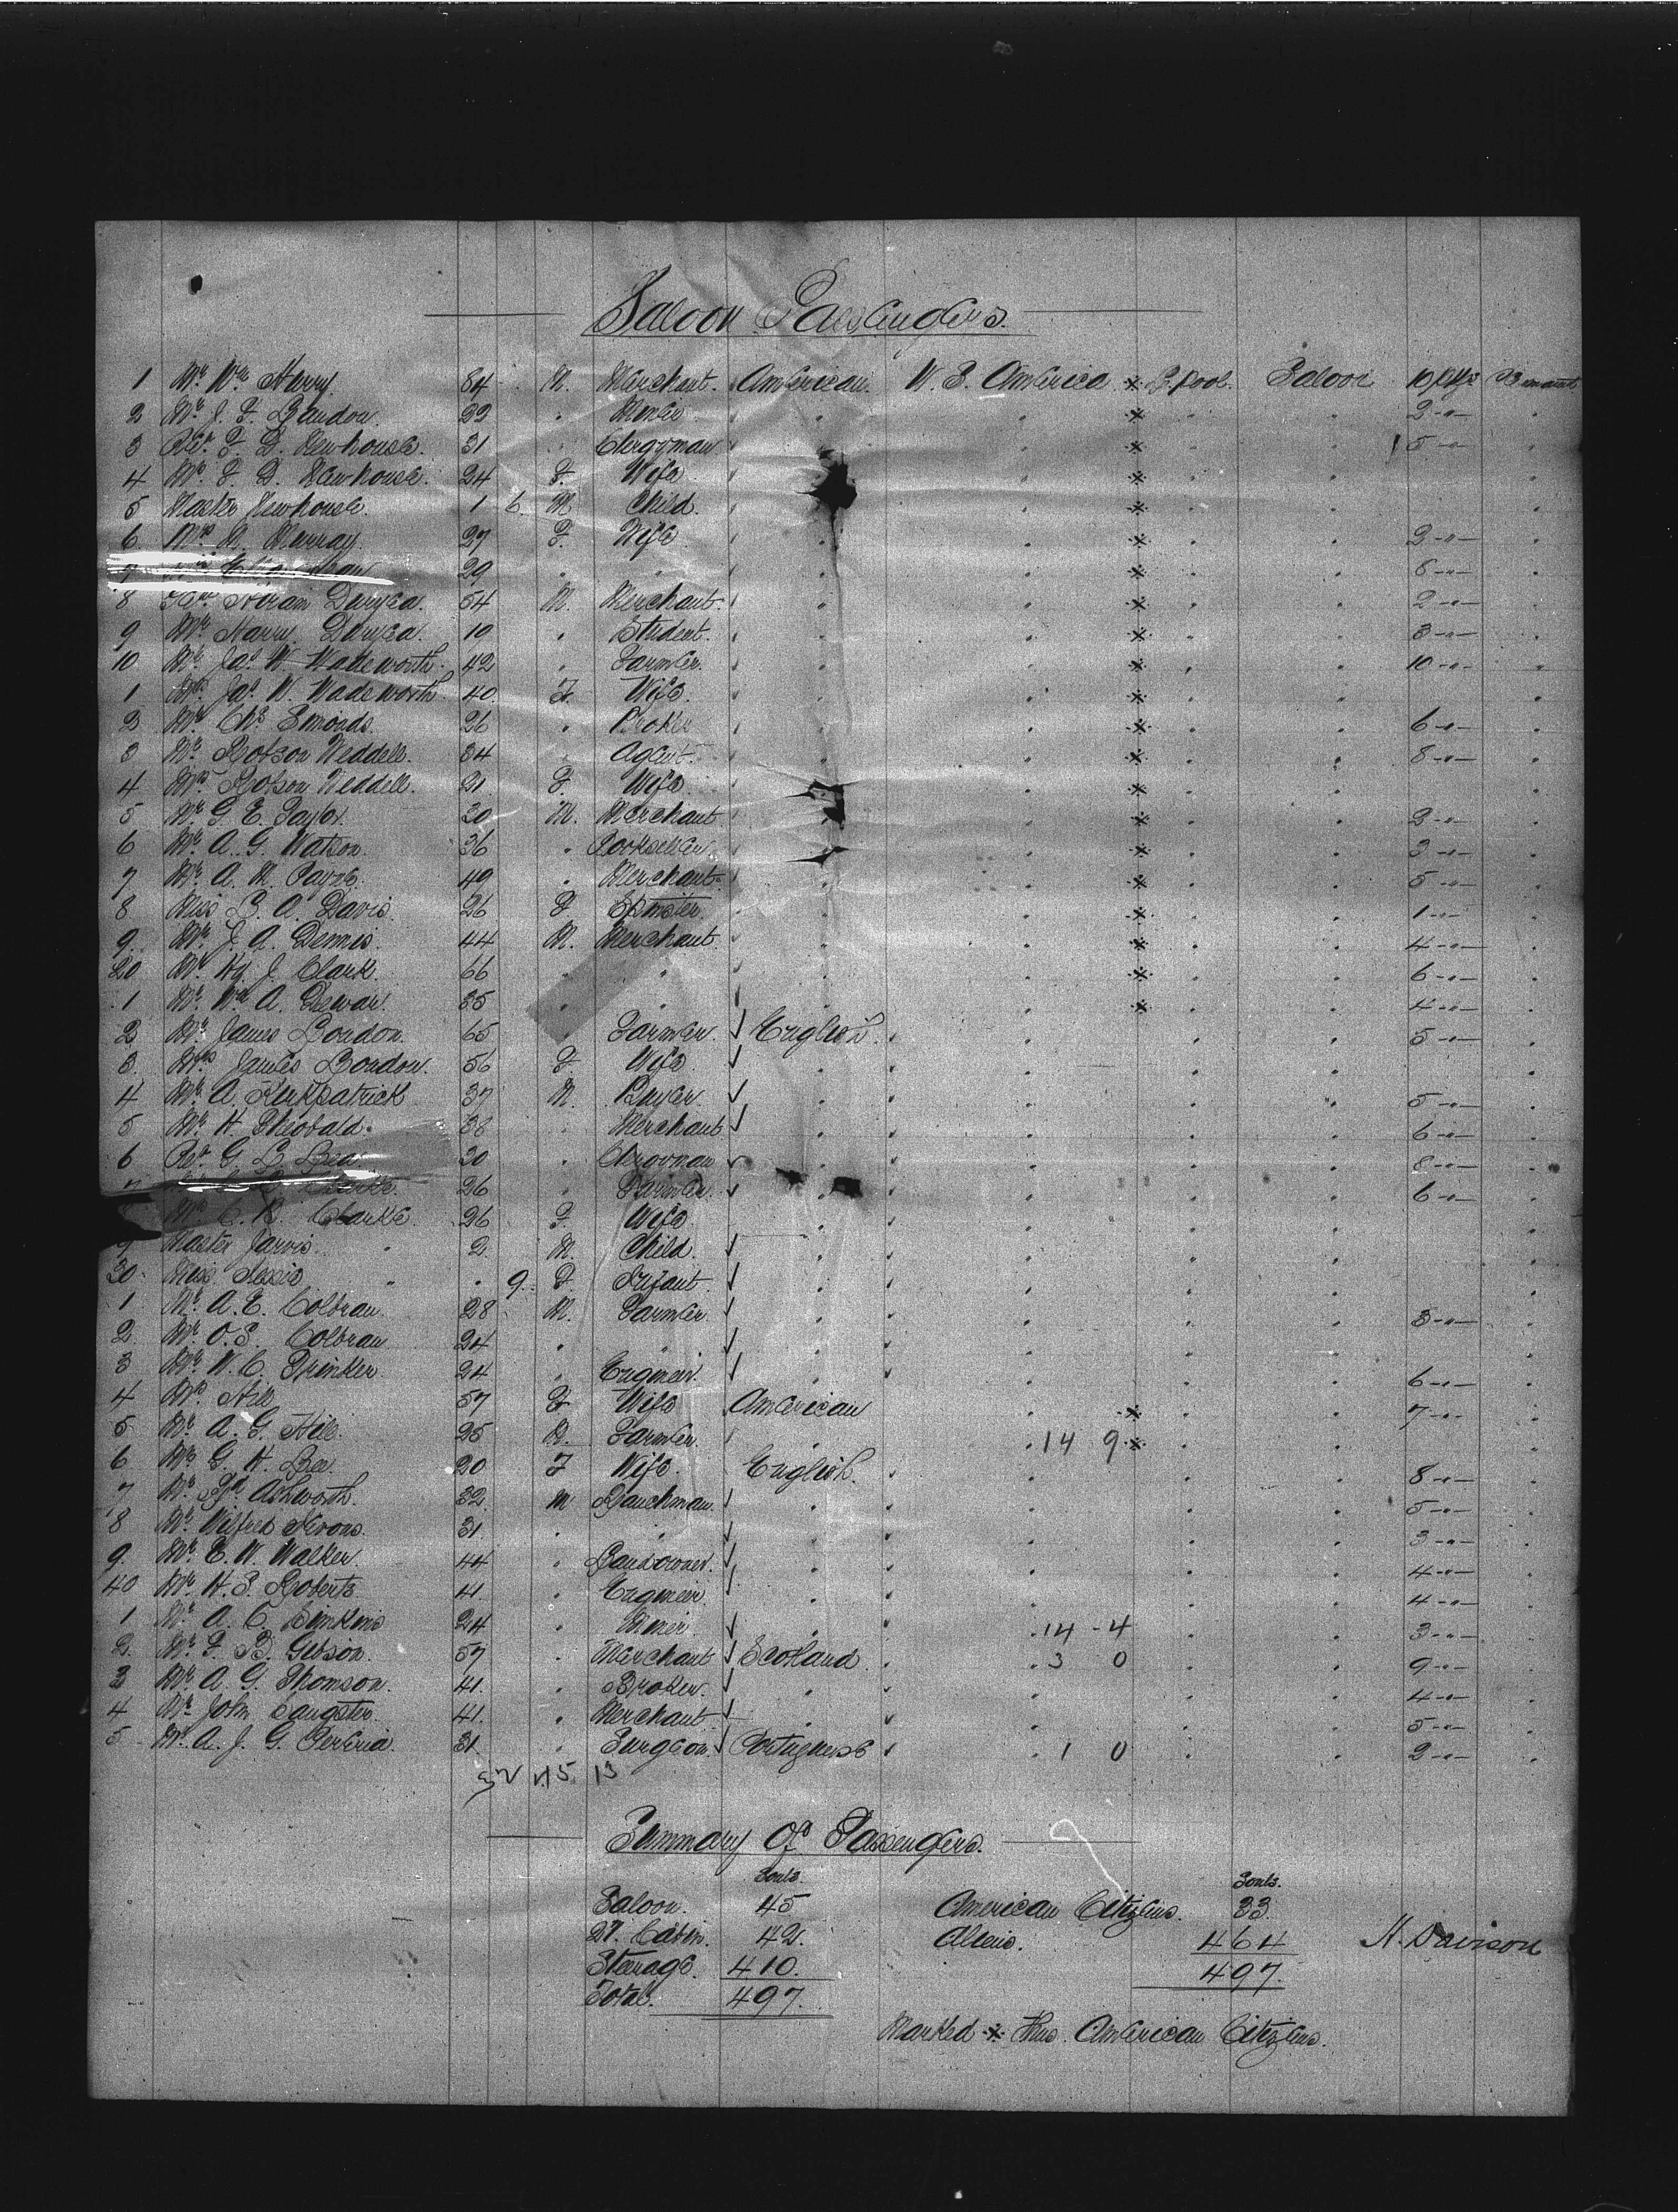 Saloon Passengers.
1 Mr. Wm. Harry 34 M. Merchant. American. U. S. America * L'pool. Saloon 10 Pkgs
2 Mr. J. F. Landon. " * " " 2 - " -
3 Rev. F. D. Newhouse. 31 Clergyman " * " " 5 - " -
4 Mrs. F. D. Newhouse. 24 F. Wife " * " "
5 Master Newhouse. 1 6. M Child. " * " "
6 Mrs. Murray. 27 F. Wife " * " " 2 - " -
7 29 " " * " "
8 Hiram Duryea. 54 M. Merchant. " * " " 2 - " -
9 Mr. Harry Duryea. 19 " Student. " * " " 3 - " -
10 Mr. Jas. W. Wadsworth. 42 " Farmer. " * " " 10 - " -
1 Mrs. Jas. W. Wadsworth. 40. F. Wife. " * " "
2 Mr. Chs. Simonds. 26 " " * " " 6 - " -
3 Mr. Robson Weddell. 34 Agent. " * " " 8 - " -
4 Mrs. Robson Weddell. 21. F. Wife " * " "
5 Mr. G. E. Taylor. 30 M. Merchant. " * " "
6 Mr. A. G. Watson. 36 " Bookseller. " * " " 3 - " -
7 Mr. A. M. Payne. 49 " Merchant. " * " " 5 - " -
8 Miss L. A. Davis. 26 F Spinster. " * " " 1 - " -
9. Mr. J. A. Dennis. 44 M. Merchant. " * " " 4 - " -
20 Mr. Hy. J. Clark. 66 " " " * " " 6 - " -
1 Mr. Wm. A. Dewar. 35 " " " * " " 4 - " -
2 Mr. James London. 65 " Farmer. English. " " 5 - " -
3. Mrs. James London. 56 F. Wife. " " "
4 Mr. A. Kirkpatrick 37 M. Buyer. " " " 5 - " -
5 Mr. H. Theobald. 38 Merchant " " " 6 - " -
6 Rev. G. Lee 30 " Clergyman " " "
7 Clarke. 26 " Farmer. " " " 6 - " -
Mrs. C. Clarke. 26 F. Wife " " "
9 Master Jarvis. " 2 M. Child. " " "
30. Miss Jessie " 9. F Infant. " " "
1. Mr. A. E. Colbran. 28 M. Farmer. " " " 3 - " -
2. Mr. O. S. Colbran 24 " " " " "
3 Mr. W. C. Trinker. 24 " Engineer. " " " 6 - " -
4 Mrs. Hill 57 F Wife American " * " " 7 - " -
5 Mr. A. G. Hill. 25 M. Farmer. " 14 9 * " "
6 Mrs. G. H. Lee. 20 F Wife. English. " " " 8 - " -
7 Mr. Ashworth. 32. M Ranchman. " " " 5 - " -
8 Mr. Wilfred 31. " " " " " 3 - " -
9. Mr. E. W. Walker. 44 " Landowner. " " " 4 - " -
40 Mr. H. S. Roberts 41. " Engineer. " " " 4 - " -
1 Mr. A. C. 24 " " 14 - 4 " " 3 - " -
2. Mr. F. B. Gibson. 57 " Merchant Scotland. 3 0 " " 9 - " -
3 Mr. A. G. Thomson. 41. " Broker. " " " 4 - " -
4 Mr. John Sangster. 41. " Merchant. " " " 5 - " -
5. Mr. A. J. G. Pereria. 31. " Surgeon. Portuguese 1 0 " " 2 - " -
32 45 13
Summary Of Passengers.
Souls. Souls.
Saloon. 45 American Citizens. 33
2d. Cabin. 42. Aliens. 464 H. Davison
Steerage. 410. 497.
Total. 497.
Marked * Thus. American Citizens.